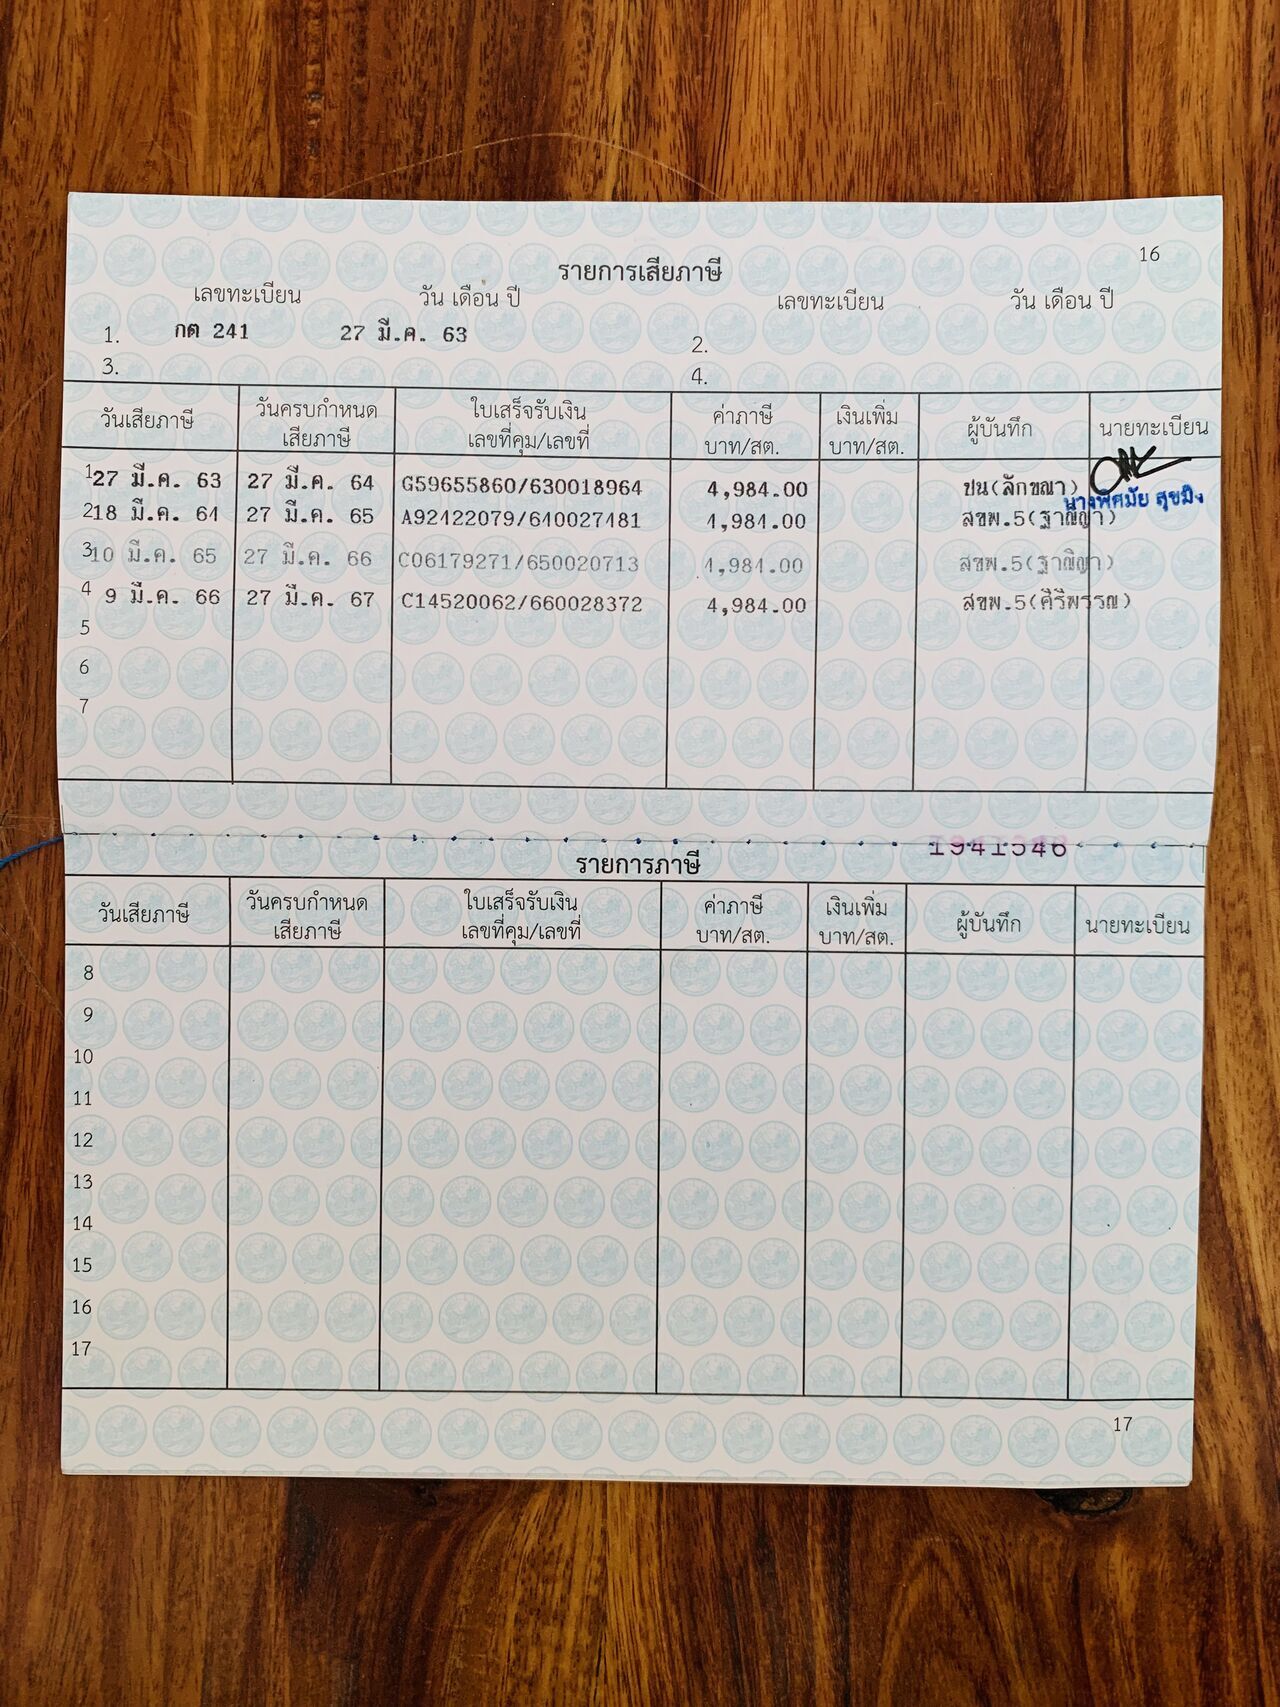 16
รายการเสียภาษี
เลขทะเบียน วัน เดือน ปี เลขทะเบียน วัน เดือน ปี
1. กต 241 27 มี.ค. 63 2.
3. 4.
วันเสียภาษี วันครบกำหนด เสียภาษี ใบเสร็จรับเงิน เลขที่คุม/เลขที่ ค่าภาษี บาท/สต. เงินเพิ่ม บาท/สต. ผู้บันทึก นายทะเบียน
1 27 มี.ค. 63 27 มี.ค. 64 G59655860/630018964 4,984.00 ปน(ลักขณา)
นางพิศมัย สุขมิ่ง
2 18 มี.ค. 64 27 มี.ค. 65 A92122079/640027481 4,984.00 สขพ.5(ฐาณิญา)
3 10 มี.ค. 65 27 มี.ค. 66 C06179271/650020713 4,984.00 สขพ.5(ฐาณิญา)
4 9 มี.ค. 66 27 มี.ค. 67 C14520062/660028372 4,984.00 สขพ.5(ศิริพรรณ)
5
6
7
1941546
รายการภาษี
วันเสียภาษี วันครบกำหนด เสียภาษี ใบเสร็จรับเงิน เลขที่คุม/เลขที่ ค่าภาษี บาท/สต. เงินเพิ่ม บาท/สต. ผู้บันทึก นายทะเบียน
8
9
10
11
12
13
14
15
16
17
17